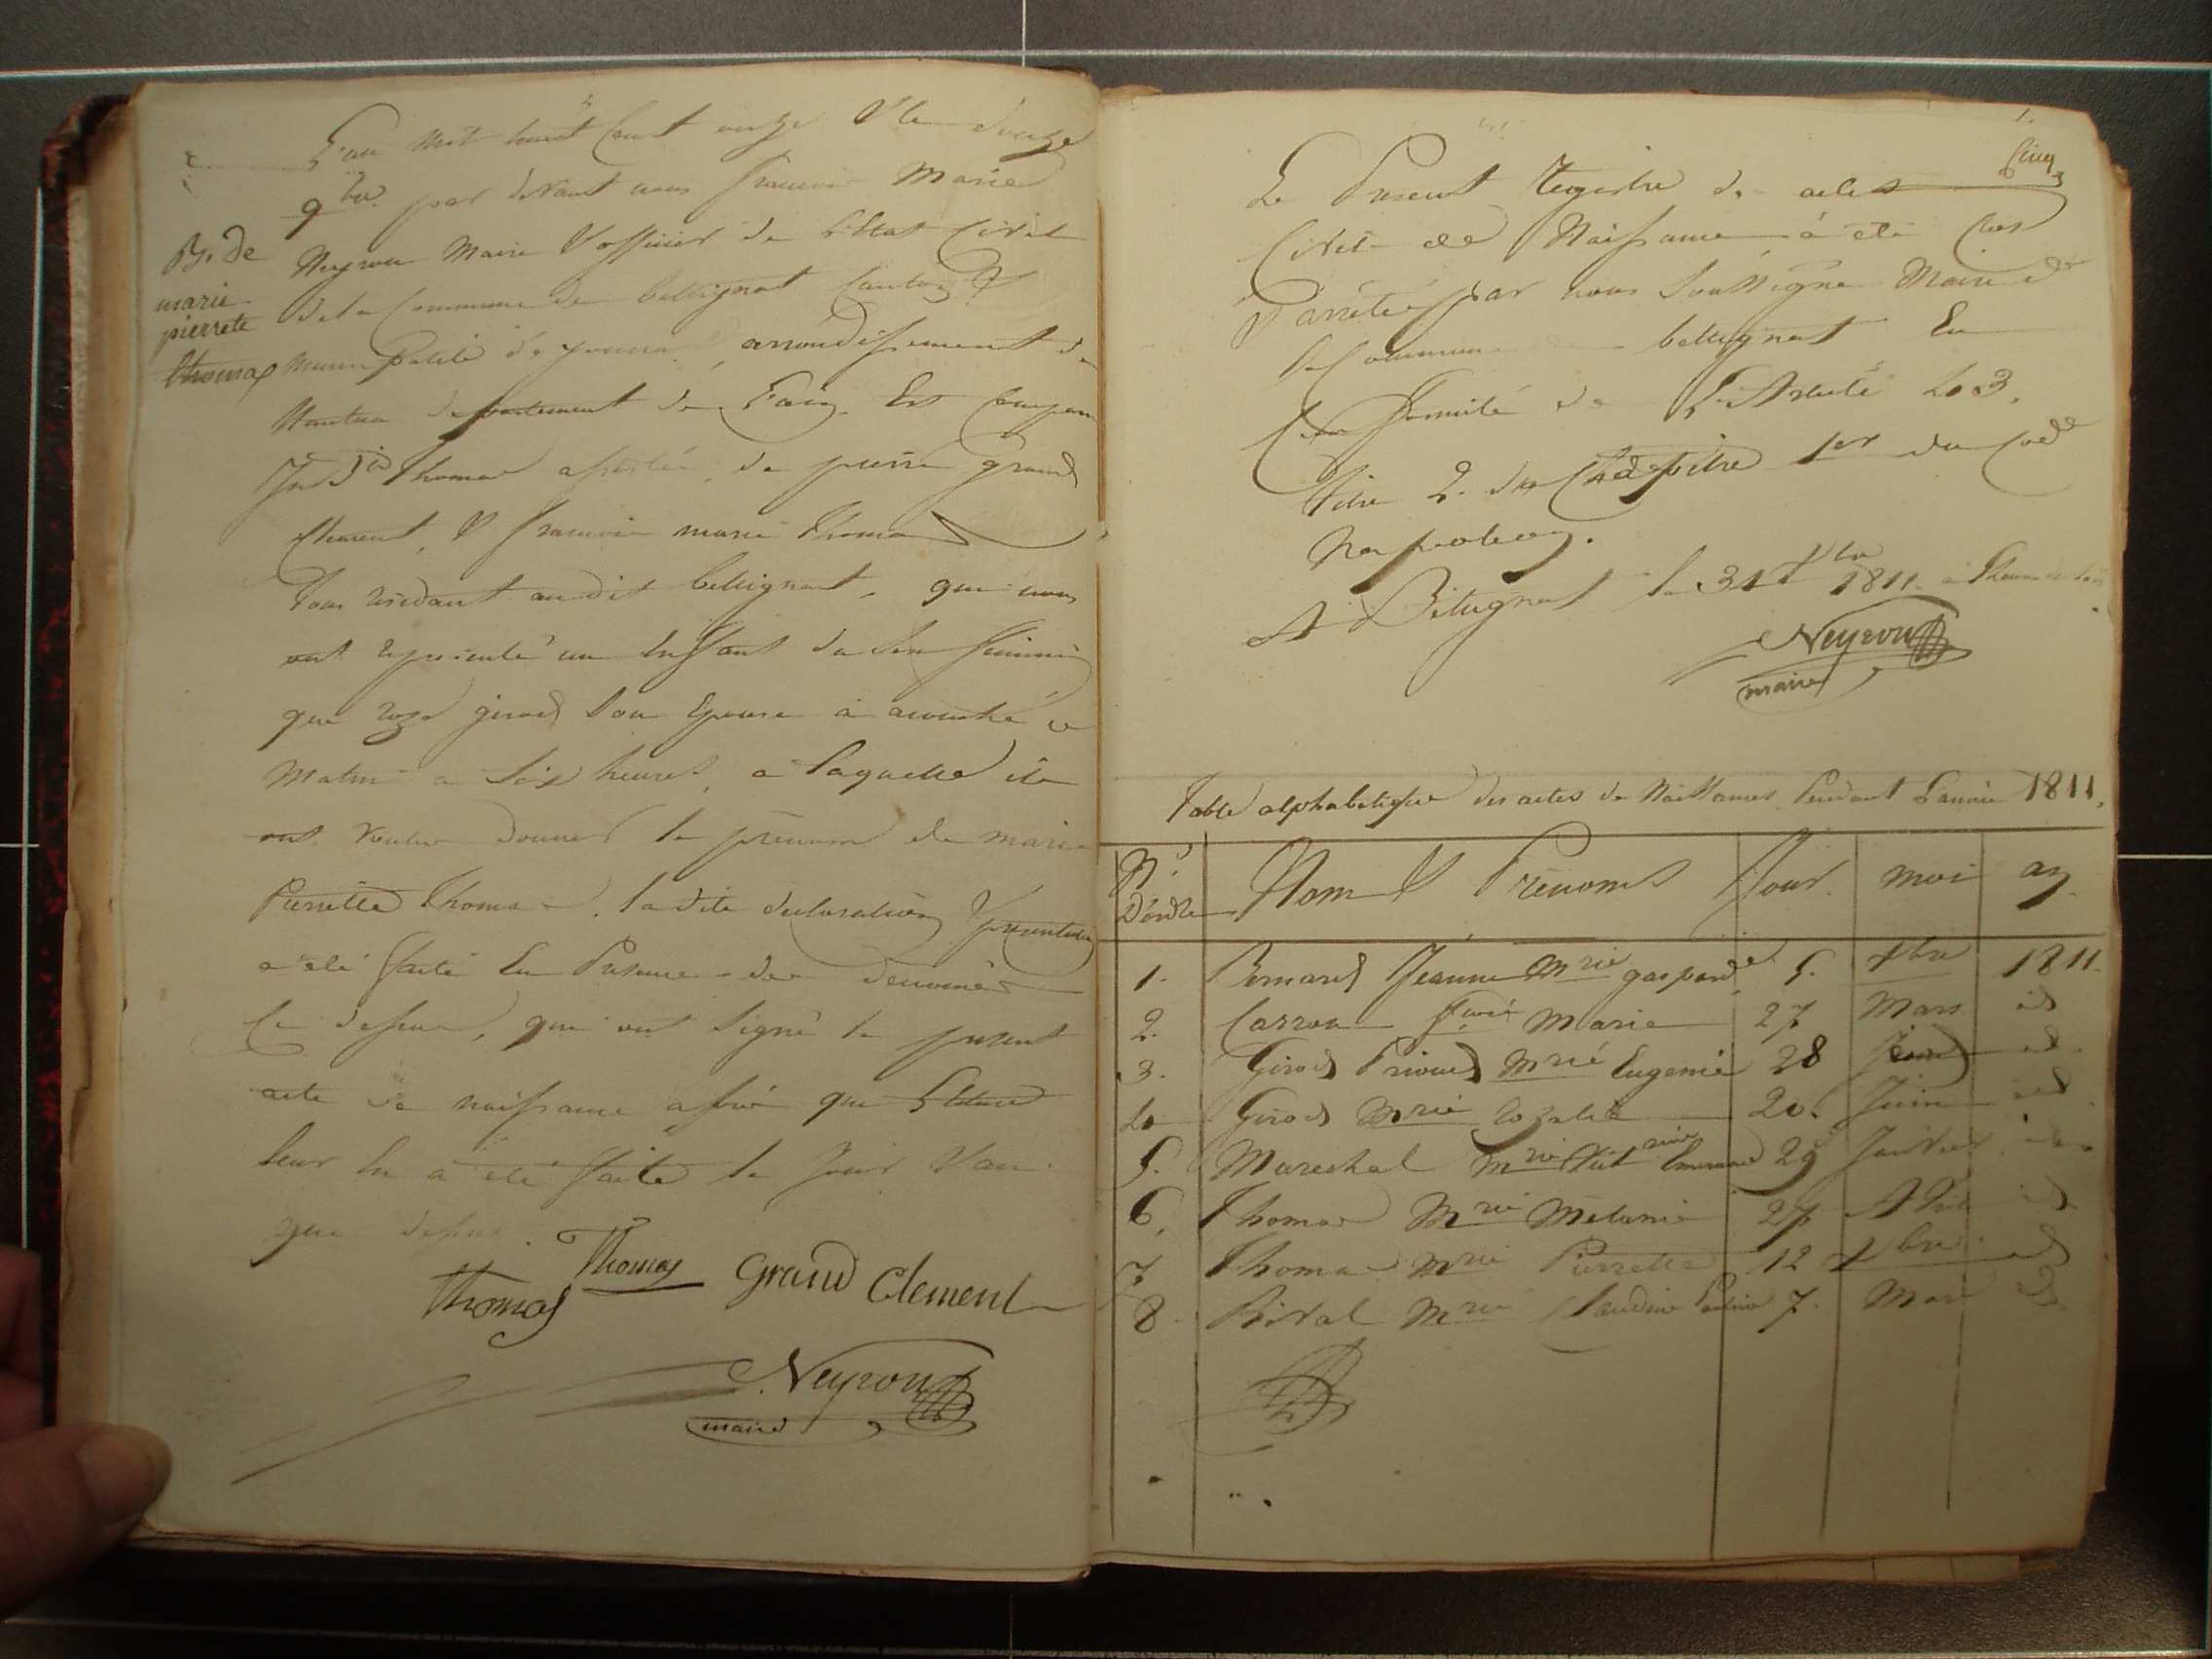 L'an mil huit Cent onze & le douze
9bre. par devant nous francois Marie
Neyron Maire & officier de L'Etat Civil
de la Commune de bellignat Canton &
arrondissement de
Nantua departement de L'ain Est Comparu
Thomas assisté de pierre grand
Clement, & francois marie Thomas
Tous residant au dit bellignat, qui nous
ont representé un Enfant du Sexe feminin
que roze girod Son Epouse à accouché ce
Matin a Six heures, a Laquelle ils
ont voulu donner le prénom de marie
Pierrette Thomas. la dite declaration & presentation
a été faite En Presence des denommés
Ci dessus, qui ont Signé le present
acte de naissance après que Lecture
leur En a été faite le Jour & an
que dessus.
Thomas Thomas Grand Clement
Neyron
maire
N. de
marie
pierrete
thomas
Cinq
Le Present Registre des actes
Civils de Naissance à été Clos
& arrêté par nous Soussigné Maire de
la Commune bellignat En
Conformité de L'Article 43.
Titre 2. du Chapitre 1er du Code
Napoleon.
A Bellignat le 31 Xbre 1811.
Neyron
maire
Table alphabetique des actes de Naissances Pendant L'année 1811.
N.º D'ordre Nom & Prénoms Jour. moi an
1. Bernard Jeanne Mrie gasparde 5. Xbre 1811.
2. Carron fçois Marie 27 Mars id
3. Girod Privas Mrie Eugenie 28 id
4 Girod Mrie rozalie 20. Juin id
5. Marechal Mrie 29 Janvier id
6. Thomas Mrie Mélanie 27 Avril id
7 Thomas Mrie Pierrette 12 Xbre id
8. Mrie Claudine 7. Mars id